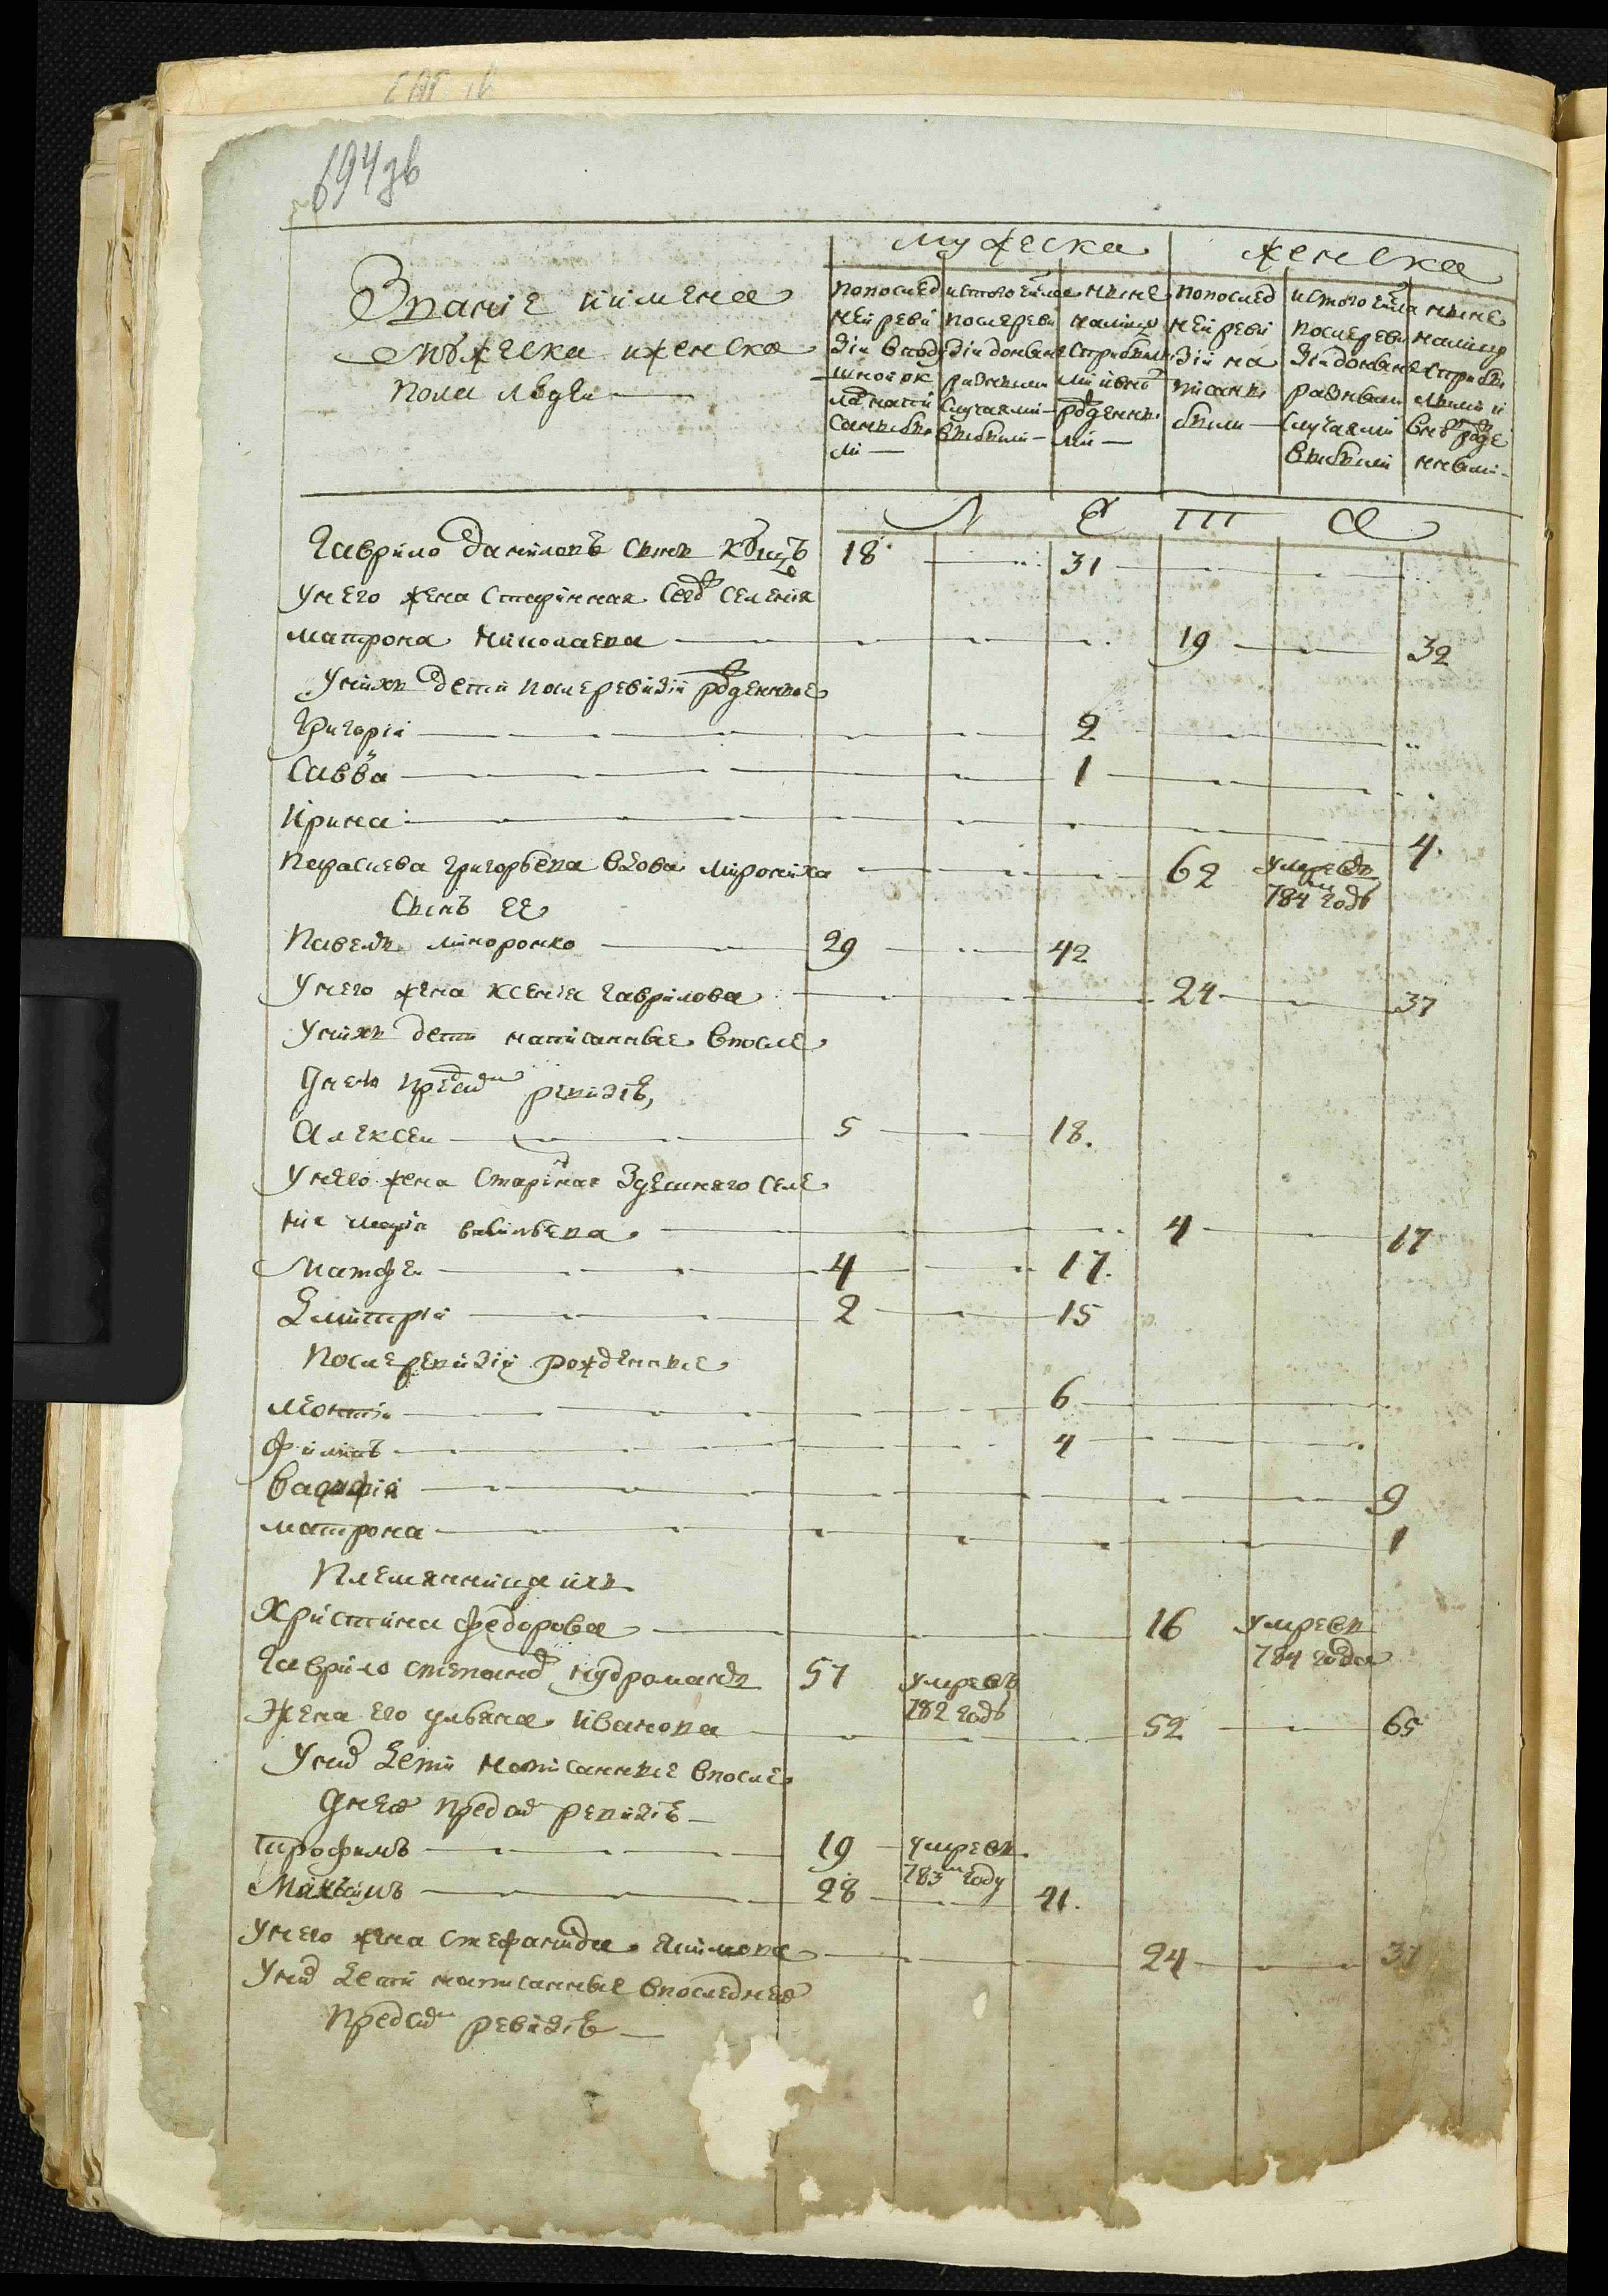 694 зв
мужеска
женска
Звание и имена
мужеска и женска
пола людей
по послед
ней реви
зіи в под
из того числа
после реви
зіи до ныне
разными
случаями
выбыли
ныне
на лицо
с прибылы
ми и вно
рожденны
ми
по послед
ней реви
зіи на
писаны
были
из того числа
после реви
зіи до ныне
разными
случаями
выбыли
ныне
на лицо
с прибы
лыми и
внов рожде
нными
Л Е Т А
Гаврило Даниловъ сынъ 18 31
у него жена старинная сего селения
матрона Николаева 19 32
у них дети после ревизіи рожденные
Григорій 2
Савва 1
Ирина 4.
Параскева григорьева вдова мирониха 62 умре въ 784м годѣ
Сынъ ее
Павелъ миронко 29 42
у него жена ксения гаврилова 24 37
у нихъ дети написанные в после
дней пред сим ревизіѣ,
Алексей 5 18.
у него жена старинная здешняго селе
ния марія васильева 4 17
Матфей 4 17.
Дмитрій 2 15
После ревизіи рожденные
леонтій 6
филипъ 4
9
матрона 1
Племянница ихъ
Христина федорова 16 умре въ 784 года
Гаврило степанов 57 умре въ 782 годѣ
Жена его ульяна Иванова 52 65
У них дети написанные в после
дней пред сим ревизіѣ
трофимъ 19 умре въ 783м году
Максимъ 28 41.
у него жена стефанида 24 37
У них дети написанные в последней
пред сим ревизіѣ